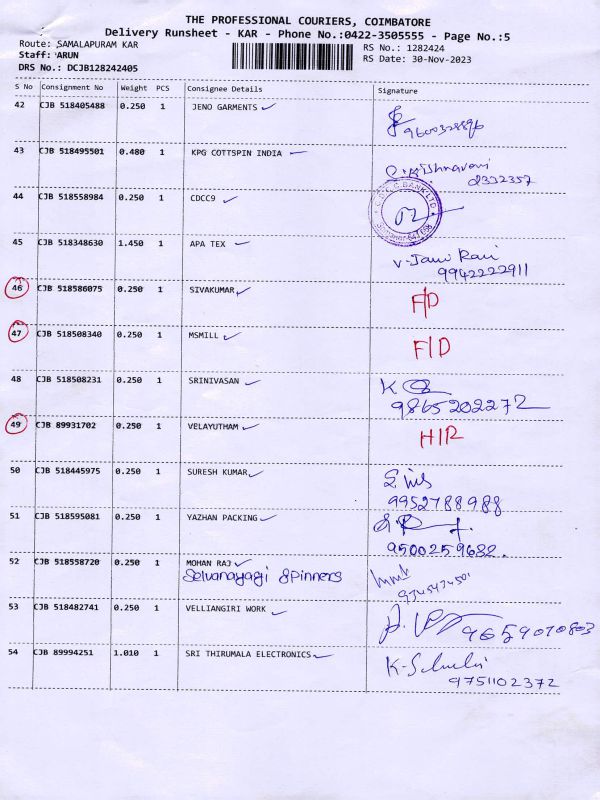 THE PROFESSIONAL COURIERS, COIMBATORE
Delivery Runsheet - KAR - Phone No.:0422-3505555 - Page No.:5
Route: SAMALAPURAM KAR RS No.: 1282424
Staff: ARUN RS Date: 30-Nov-2023
DRS No.: DCJB128242405
S No Consignment No Weight PCS Consignee Details Signature
42 CJB 518405488 0.250 1 JENO GARMENTS
43 CJB 518495501 0.480 1 KPG COTTSPIN INDIA
2332357
44 CJB 518558984 0.250 1 CDCC9
45 CJB 518348630 1.450 1 APA TEX
9942222911
46 CJB 518586075 0.250 1 SIVAKUMAR F/D
47 CJB 518508340 0.250 1 MSMILL F/D
48 CJB 518508231 0.250 1 SRINIVASAN
9865202272
49 CJB 89931702 0.250 1 VELAYUTHAM H/R
50 CJB 518445975 0.250 1 SURESH KUMAR
9952788988
51 CJB 518595081 0.250 1 YAZHAN PACKING
9500259682.
52 CJB 518558720 0.250 1 MOHAN RAJ
Selvanayagi Spinners
53 CJB 518482741 0.250 1 VELLIANGIRI WORK
9659070803
54 CJB 89994251 1.010 1 SRI THIRUMALA ELECTRONICS
9751102372